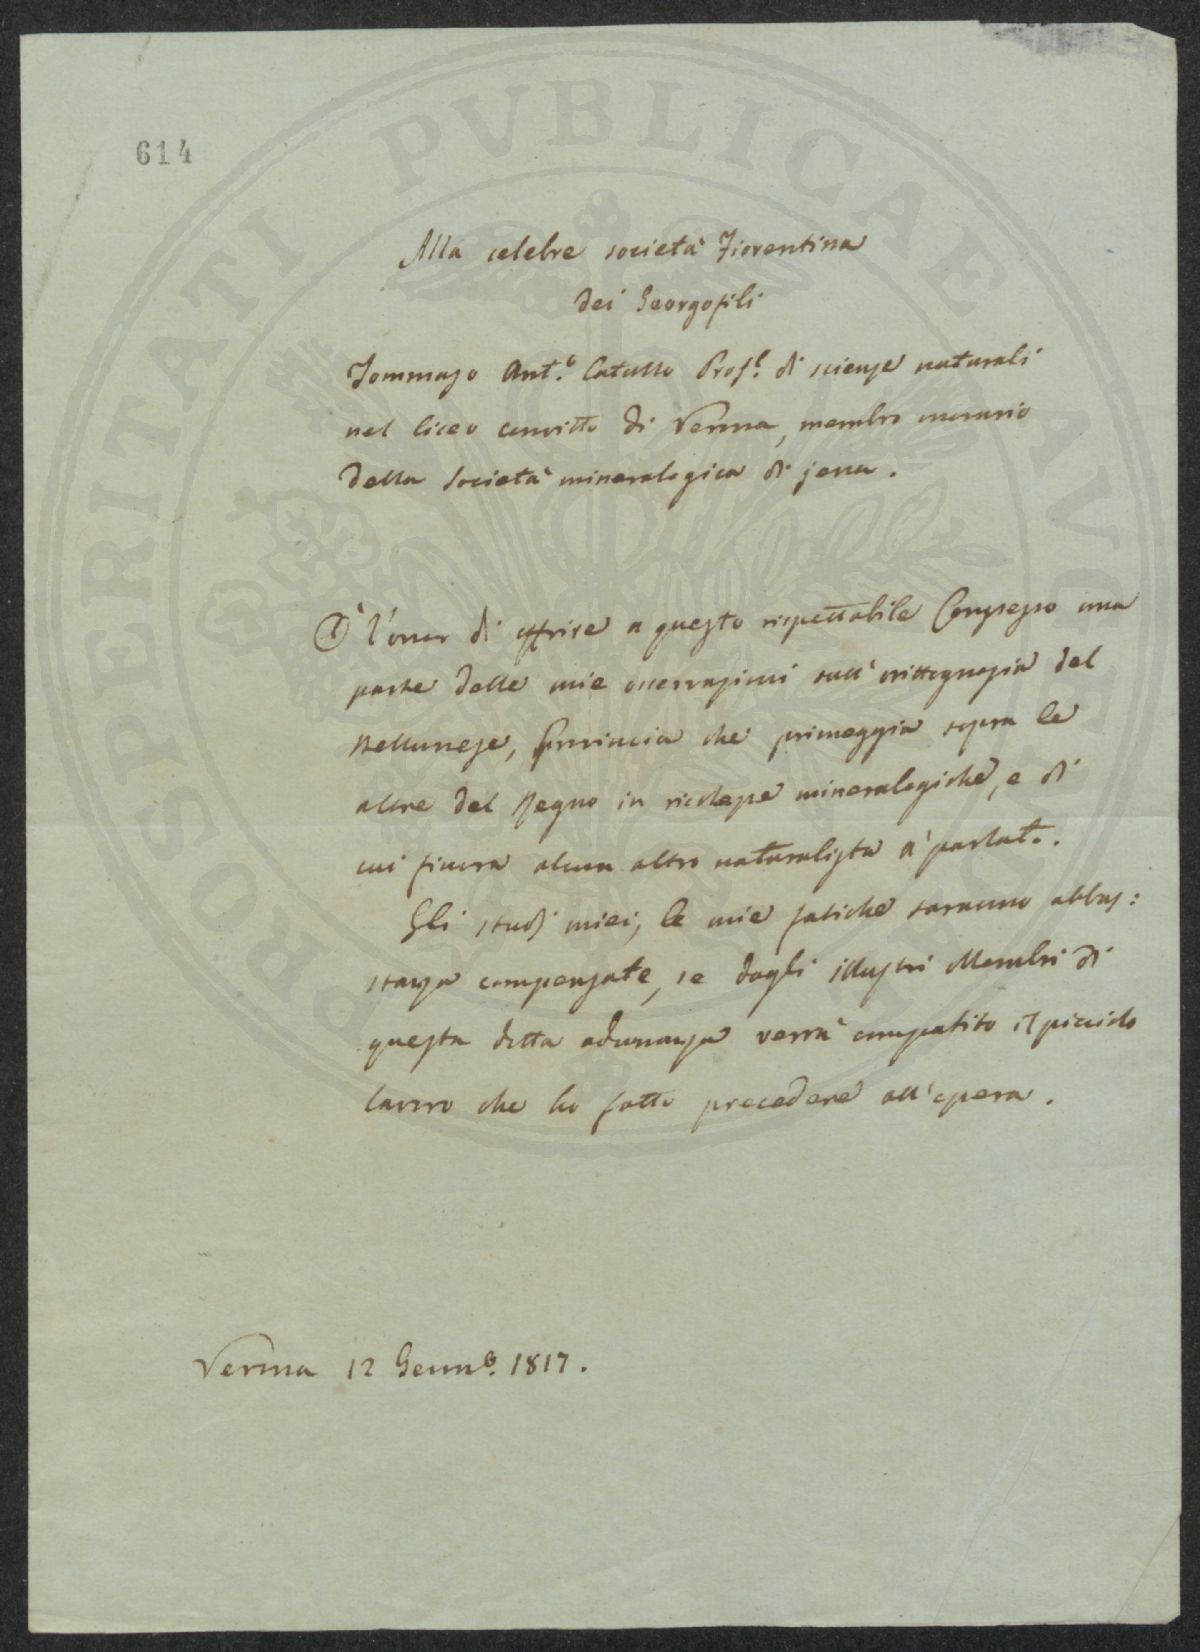 614
PROSPERITATI PUBLICAE AUGENDAE
Alla celebre società Fiorentina
dei Georgofili
Tommaso Ant.º Catullo Prof.e di scienze naturali
nel liceo convitto di Verona, membro onorario
della società mineralogica di jena.
Ò l'onor di offrire a questo rispettabile Consesso una
parte delle mie osservazioni sull'orittognosia del
Bellunese, Provincia che primeggia sopra le
altre del Regno in richezze mineralogiche, e di
cui finora alcun altro naturalista à parlato.
Gli studj miei, le mie fatiche saranno abbas:
stanza compensate, se dagli illustri Membri di
questa dotta adunanza verrà compatito il picciolo
lavoro che ho fatto precedere all'opera.
Verona 12 Genn.º 1817.